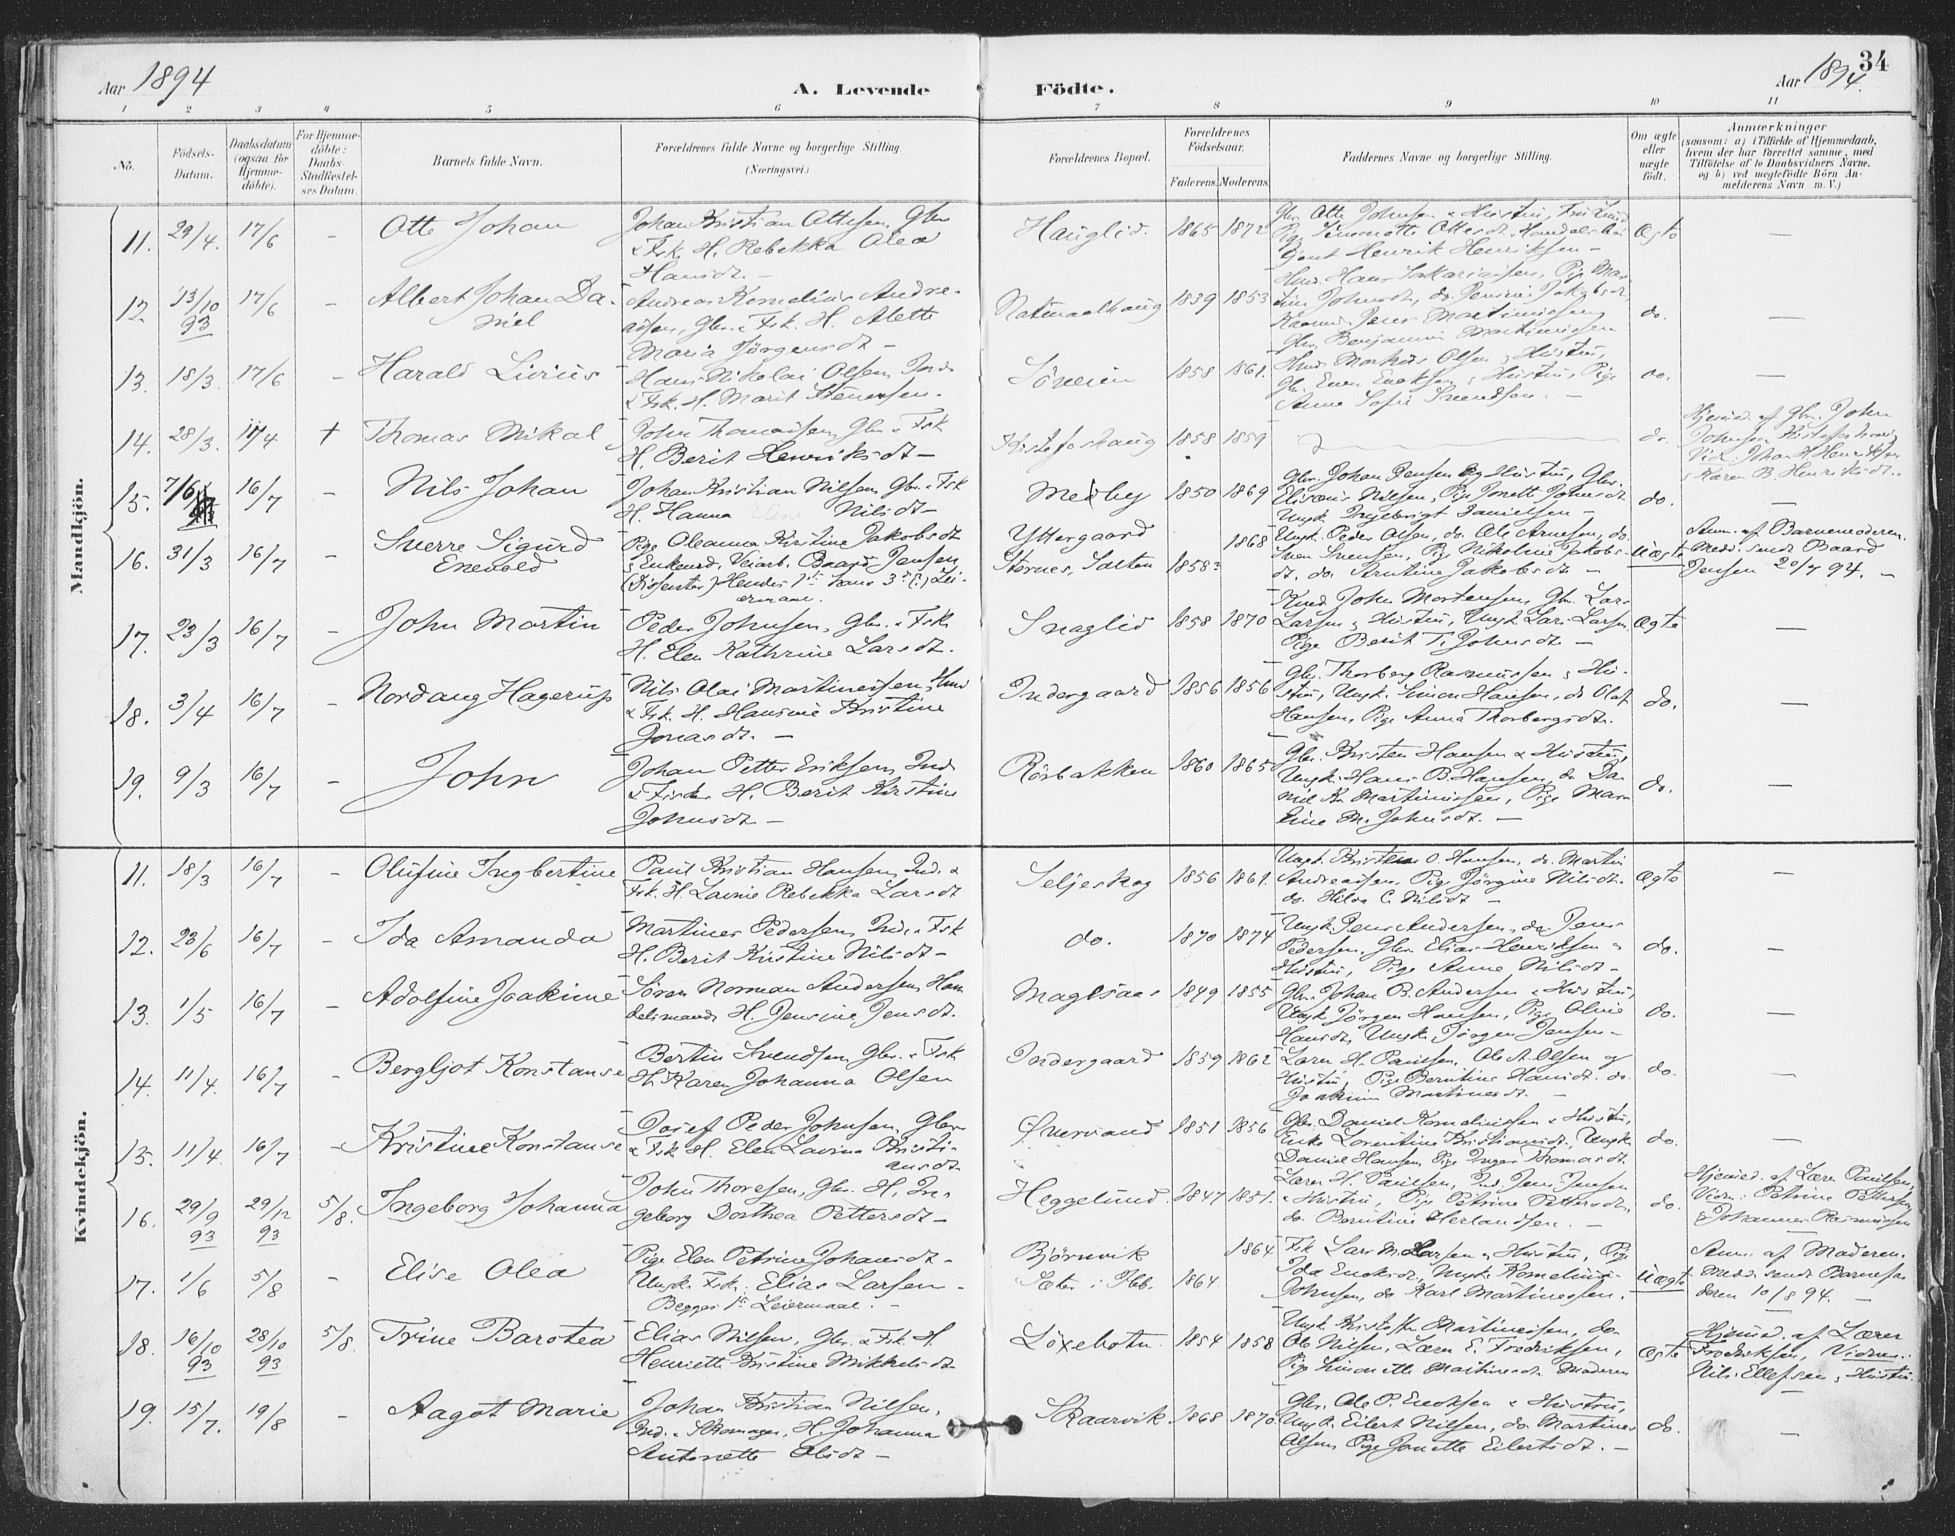 Aar 1894
A. Levende Födte.
Aar 1894.
34
1 2 3 4 5 6 7 8 9 10 11
Nô.
Födsels-Datum.
Daabsdatum (ogsaa for Hjemmedöbte).
For Hjemmedöbte: Daabs-Stadfæstelses Datum.
Barnets fulde Navn.
Forældrenes fulde Navne og borgerlige Stilling. (Næringsvei.)
Forældrenes Bopæl.
Forældrenes Födselsaar.
Faderens. Moderens.
Faddernes Navne og borgerlige Stilling.
Om ægte eller uægte födt.
Anmærkninger
(saasom: a) i Tilfælde af Hjemmedaab, hvem der har forrettet samme, med Tilföielse af to Daabsvidners Navne, og b) ved uegtefödte Börn Anmelderens Navn m. V.)
Mandkjön.
11. 29/4. 17/6 - Otte Johan
Johan Kristian Ottesen, Gbr
& Fsk. H. Rebekka Olea
Hansdt. -
Hauglid. 1865 1872
Gbr. Otte Johnsen & Hustru,
Pige Simonette Ottesdt.
Henrik Henriksen -
Ægte -
12. 13/10 93 17/6 - Albert Johan Da-
niel
Andreas Kornelius Andre-
asen, Gbr. & Fsk. H. Alette
Maria Jörgensdt -
1839 1853
Hans Sakariassen, Pige
Gbr. Benjamin Martinussen
do. -
13. 18/3. 17/6 - Harald Livius
Hans Nikolai Olsen, Ind.
& Fsk. H. Marit Stenersen.
Söveien 1858 1861.
Olsen & Hustru,
Gbr. & Hustru, Pige
Anne Sofie Svendsen. -
do. -
14. 28/3. 11/4 + Thomas Mikal
John Thomassen, Gbr. & Fsk
H. Berit Henriksdt -
Kristofershaug 1858 1859
do.
Hjemmed. af Gbr. John
Johnsen
Vid. Johan H. Henriksen
& Karen B. Henriksdt.
15. 7/6 16/7 - Nils Johan
Johan Kristian Nilsen, Gbr. & Fsk
H. Hanna Nilsdt -
Medby 1850 1869
Gbr. Johan Jensen og Hustru, Gbr.
Eliseus Nilsen, Pige Jonette Johnsdt
Ungk. Ingebrigt Danielsen -
do. -
16. 31/3 16/7 - Sverre Sigurd
Enevold
Pige Oleanna Kirstine Jakobsdt
& Enkemd. Veiarb. Baard Jensen
(Dissenter) Hendes 1ste hans 3die Lei-
ermaal.
Yttergaard
Stornes, Salten 1858? 1868
Ungk. Peder Olsen, do. Ole Arnesen, do.
Sven Svensen, Pig. Nikoline Jakobs-
dt. do. Arntine Jakobsdt -
Uægte
Anm. af Barnemoderen.
Medd. sendt Baard
Jensen 20/7 94. -
17. 23/3 16/7 - John Martin
Peder Johnsen, Gbr. & Fsk
H. Elen Kathrine Larsdt.
Snaglid 1858 1870
John Mortensen, Gbr. Lars
Larsen & Hustru, Ungk. Lars Larsen,
Pige Berit T. Johnsdt -
Ægte -
18. 3/4 16/7 - Nordang Hagerup
Nils Olai Martineusen,
& Fsk. H. Hansine Kristine
Jonasdt. -
Indergaard 1856 1856
Gbr. Thorberg Rasmussen & Hu-
stru, Ungk. Simon Hansen, do Olaf
Hansen, Pige Anna Thorbergsdt.
do. -
19. 9/3 16/7 - John
Johan Petter Eriksen, Ind
& Fisker H. Berit Kirstine
Johnsdt -
Rörbakken 1860 1865
Gbr. Kristen Hansen & Hustru,
Ungk. Hans B. Hansen, do Da-
niel Kr. Martinussen, Pige
M. Johnsdt. -
do. -
Kvindekjön.
11. 18/3 16/7 - Olufine Ingbertine
Paul Kristian Hansen, Ind. &
Fsk. H. Lavine Rebekka Larsdt
Seljeskog 1856 1861.
Ungk. Kristen O. Hansen, do. Martin
Andreassen, Pige Jörgine Nilsdt.
do. Hilda C. Nilsdt -
Ægte -
12. 23/6 16/7 - Ida Amanda
Martinus Pedersen, Ind. & Fsk
H. Berit Kristine Nilsdt -
do. 1870 1874
Ungk. Jens Andersen, do Jens
Pedersen, Gbr. Elias Henriksen &
Hustru, Pige Anne Nilsdt -
do. -
13. 1/5 16/7 - Adolfine Joakime
Sören Norman Andersen, Han-
delsmand, H. Jensine Jensdt.
1849 1855
Gbr. Johan B. Andersen & Hustru,
Ungk. Jörgen Hansen, Pige Oline
Hansdt, Ungk. Jörgen Jensen -
do. -
14. 11/4. 16/7 - Bergljot Konstanse
Bertin Svendsen, Gbr. & Fsk
H. Karen Johanna Olsen
Indergaard 1859 1862
Lærer H. Paulsen, Ole A. Olsen og
Hustru, Pige Berntine Hansdt. do.
Joakime Martinusdt. -
do. -
15. 11/4. 16/7 - Kristine Konstanse
Josef Peder Johnsen, Gbr.
& Fsk. H. Elen Lavina Kristi-
ansdt.
Övervand 1851 1856
Gbr. Daniel Korneliussen & Hustru,
Enke Lorentine Kristiansdt. Ungk.
Daniel Hansen, Pige Inger Thomasdt.
do. -
16. 29/9 93 29/12 93 5/8. Ingeborg Johanna
John Thoresen, Gbr. H. In-
geborg Dorthea Pettersdt -
Heggelund. 1847 1851.
Lærer H. Paulsen, Ind. Jens Jensen
& Hustru, Pig. Petrine Pettersdt,
do Berntine Herlandsen. -
do.
Hjemmed. af Lærer Paulsen,
Vidn.: Petrine Pettersen
& Johannes Rasmussen
17. 1/6 5/8 - Elise Olea
Pige Elen Petrine Johansdt -
Ungk. Fsk. Elias Larsen -
Begges 1ste Leiermaal. -
Björnvik
Sæter i Ibb. 1864. 1864
Fsk Lars M. Larsen & Hustru, Pige
Ida Enoksdt, Ungk. Kornelius
Johnsen, do Karl Martinussen.
Uægte
Anm. af Moderen.
Medd. sendt Barnefa-
deren 10/8 94. -
18. 16/10 93 28/10 93 5/8. Trine Barotea
Elias Nilsen, Gbr. & Fsk. H.
Henriette Kristine Mikkelsdt
Löxebotn. 1854 1858
Ungk. Kristoffer Martineusen, do
Ole Nilsen, Lærer E. Fredriksen,
Pige Simonette Martinusdt. Moderen
Ægte
Hjemmed. af Lærer
Fredriksen, Vidner:
Nils Ellefsen & Hustru.
19. 15/7. 19/8 - Aagot Marie
Johan Kristian Nilsen,
Ind. & Skomager, H. Johanna
Antonette Olsdt -
Skaarvik 1868 1870
Gbr. Ole P. Enoksen & Hustru,
Ungk. Eilert Nilsen, do Martinus
Olsen, Pige Jonette Eilertsdt. -
do. -